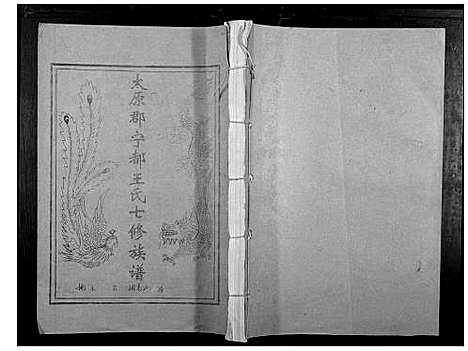 太原郡宁都王氏七修族谱